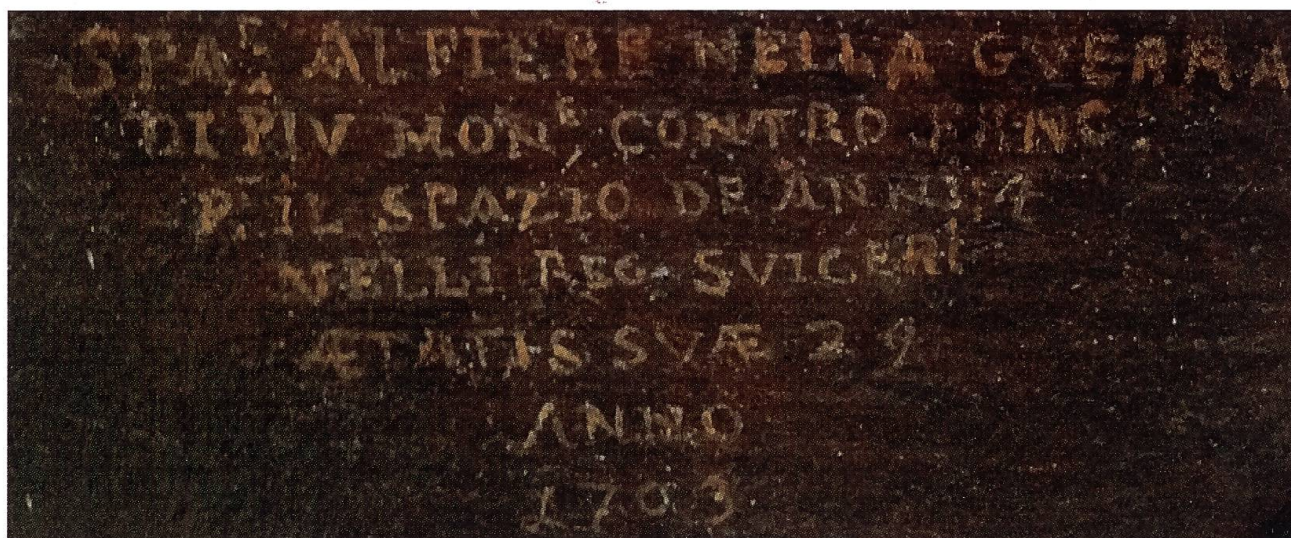 SPA.ᴱ ALFIERE NELLA GVERRA
DI PIV MON.ᴱ CONTRO
P. IL SPAZIO DE ANNI 4
NELLI REG. SVICERI
ÆTATIS SVÆ 29
ANNO
1703